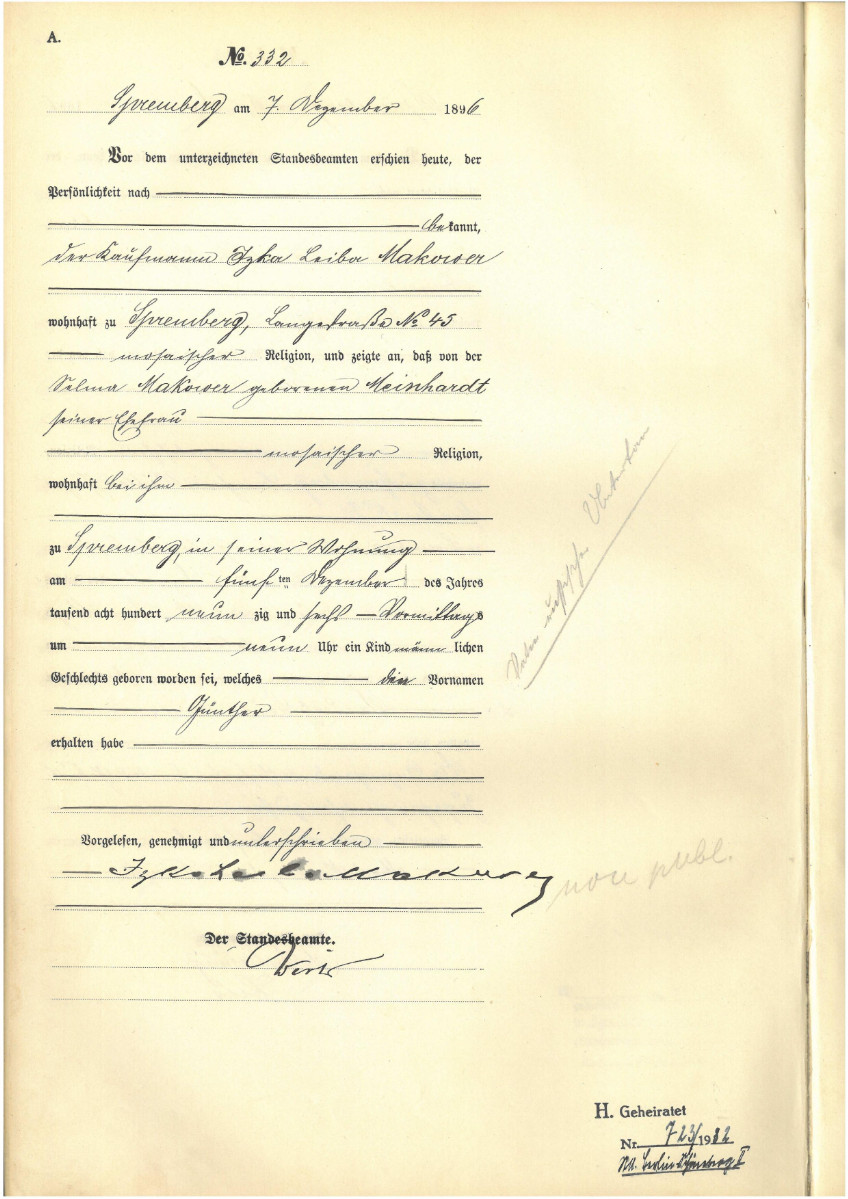 A.
No. 332
Spremberg am 7. Dezember 1896
Vor dem unterzeichneten Standesbeamten erschien heute, der
Persönlichkeit nach
bekannt,
der Kaufmann Izka Leiba Makower
wohnhaft zu Spremberg, Langestraße No 45
mosaischer Religion, und zeigte an, daß von der
Selma Makower geborenen Meinhardt
seiner Ehefrau
mosaischer Religion,
wohnhaft bei ihm
zu Spremberg, in seiner Wohnung
am fünften Dezember des Jahres
tausend acht hundert neunzig und sechs Vormittags
um neun Uhr ein Kind männlichen
Geschlechts geboren worden sei, welches den Vornamen
Günther
erhalten habe
Vater russischer Unterthan
Vorgelesen, genehmigt und unterschrieben
Izka Leiba Makower
non publ.
Der Standesbeamte.
H. Geheiratet
Nr. 723/1922
StA. Berlin Schöneberg II